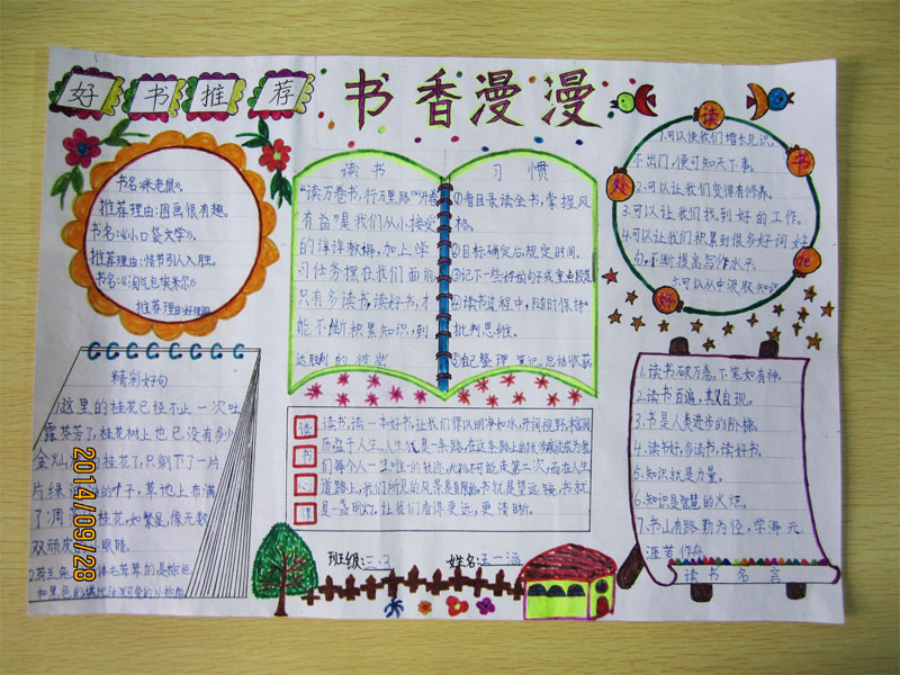 好书推荐
书香漫漫
书名:《米老鼠》。
推荐理由:图画很有趣。
书名:《小口袋大学》。
推荐理由:情节引人入胜。
书名:《淘气包埃米尔》
推荐理由:好理
读书
"读万卷书,行万里路""开卷
有益"是我们从小接受
的谆谆教诲,加上学
习任务摆在我们面前,
只有多读书,读好书,才
能不断积累知识,到
达胜利的彼岸
习惯
①看目录读全书,掌握风
格。
②目标确定后,规定时间。
③记下一些好的句子或重点段落
④读书过程中,随时保持
批判思维。
⑤自己整理笔记,总结收获
读书好处de
1.可以使我们增长见识,
不出门,便可知天下事。
2.可以让我们变得有修养。
3.可以让我们找到好的工作。
4.可以让我们积累到很多好词好
句,不断提高写作水平。
5.可以从中汲取知识
精彩好句
1.这里的桂花已经不止一次吐
露芬芳了,桂花树上也已没有多少
金灿 的桂花了,只剩下了一片
片绿 的叶子,草地上布满
了凋 桂花,如繁星,像无数
双顽皮的小眼睛。
2. 毛茸茸的是棕色
和黑色的
读书心得
读书,读一本好书,让我们得以明净如水,开阔视野,
历盗千人生,人生就是一条路,在这条路上的 成为我
们每个人一生唯一的轨迹,此路不可能走第二次,而在人生
道路上,我们所见的风景是有限的。书就是望远镜,书就
是一盏明灯,让我们看得更远,更清晰。
1.读书破万卷,下笔如有神。
2.读书百遍,其义自现。
3.书是人类进步的阶梯。
4.读书好,多读书,读好书。
5.知识就是力量。
6.知识是智慧的火炬。
7.书山有路勤为径,学海无
涯苦作舟。
读书名言
班级:三.3 姓名:王一涵
2014/09/28